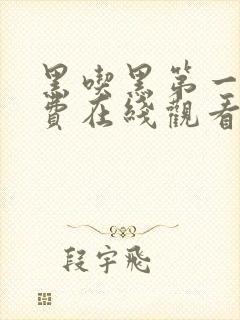 黑喫黑第一
費在綫觀看
段宇飛